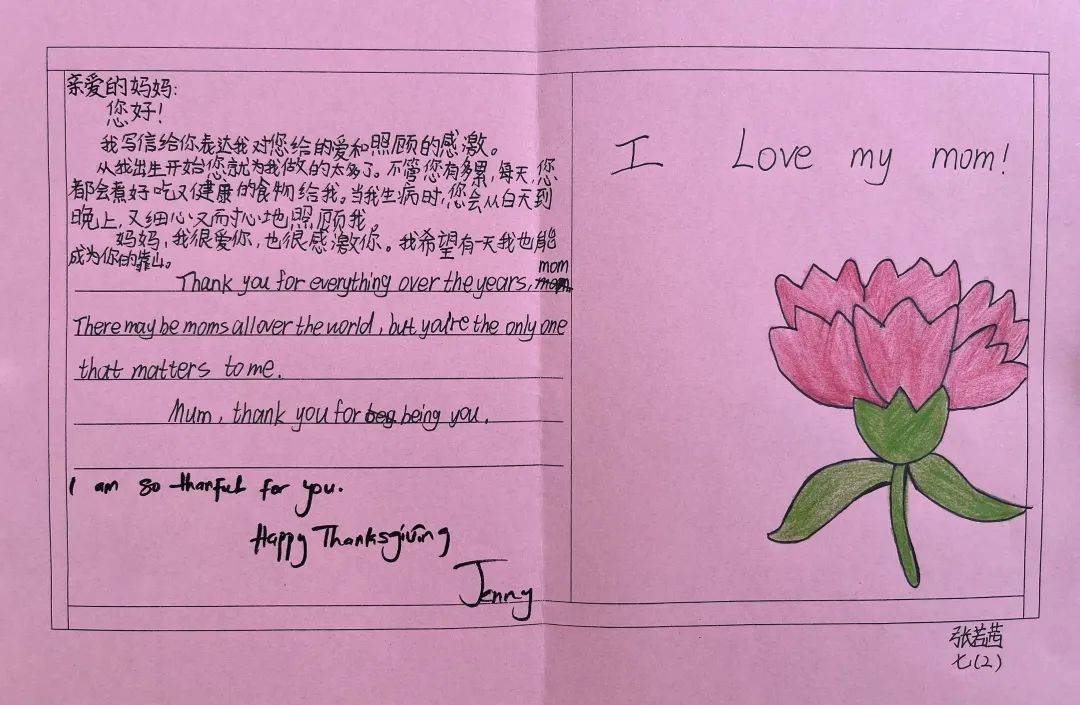 亲爱的妈妈:
您好!
我写信给你表达我对您给的爱和照顾的感激。
从我出生开始您就为我做的太多了。不管您有多累,每天,您
都会煮好吃又健康的食物给我。当我生病时,您会从白天到
晚上,又细心又耐心地照顾我。
妈妈,我很爱你,也很感激你。我希望有一天我也能
成为你的靠山。
Thank you for everything over the years, mom
There may be moms all over the world, but you're the only one
that matters to me.
Mum, thank you for being you.
I am so thanful for you.
Happy Thanksgiving
Jenny
I Love my mom!
张若茜
七(2)